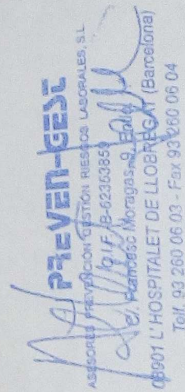 PREVEN-GEST
ASESORES PREVENCION GESTION RIESGOS LABORALES, S.L.
C.I.F. B-62353859
Francesc Moragas, 9
08901 L'HOSPITALET DE LLOBREGAT (Barcelona)
Telf. 93 260 06 03 - Fax 93 260 06 04